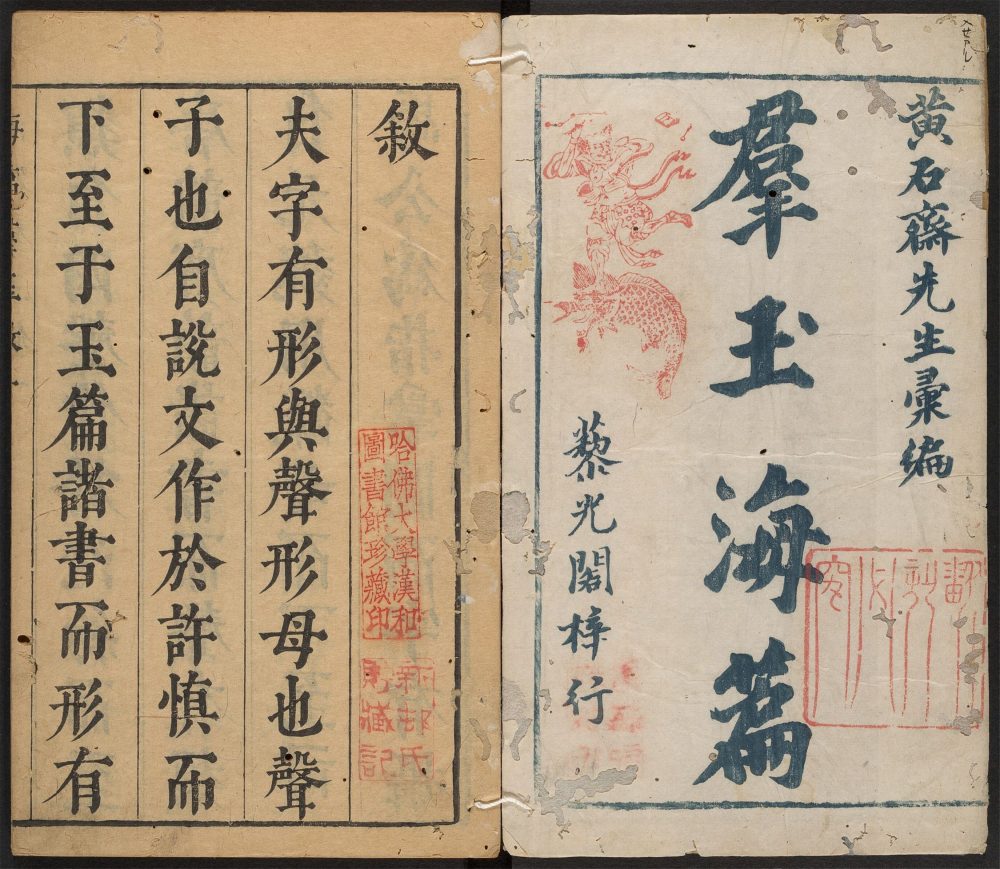 黄石齋先生彙編
羣玉海篇
藜光閣梓行
敘
夫字有形與聲形母也聲
子也自説文作於許慎而
下至于玉篇諸書而形有
哈佛大學漢和
圖書館珍藏印
新邨氏
藏記